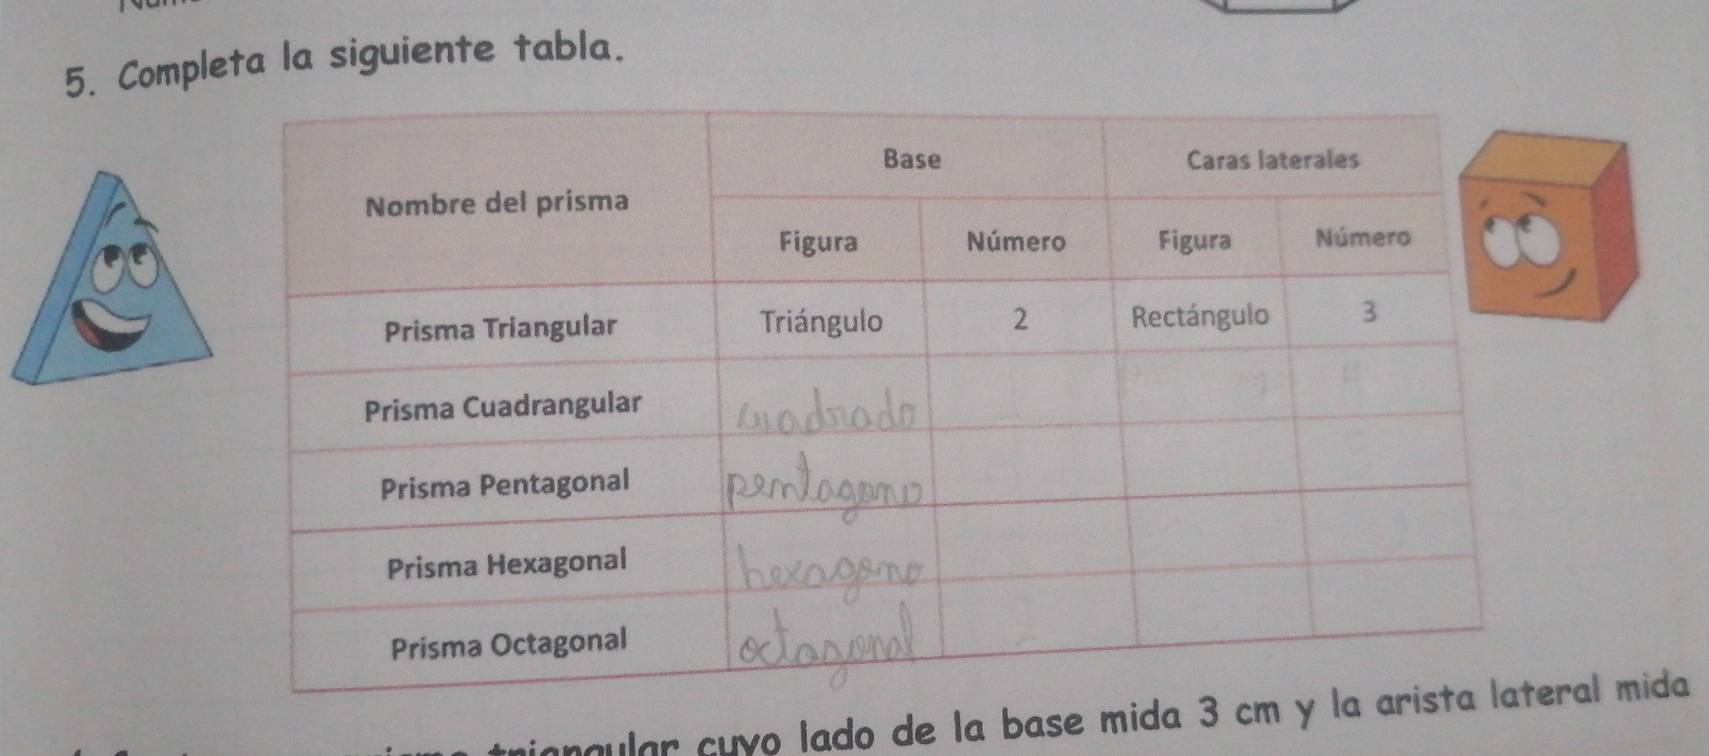 5. Completa la siguiente tabla.
Nombre del prisma Base Caras laterales
Figura Número Figura Número
Prisma Triangular Triángulo 2 Rectángulo 3
Prisma Cuadrangular cuadrado
Prisma Pentagonal pentagono
Prisma Hexagonal hexagono
Prisma Octagonal octagonal
triangular cuyo lado de la base mida 3 cm y la arista lateral mida